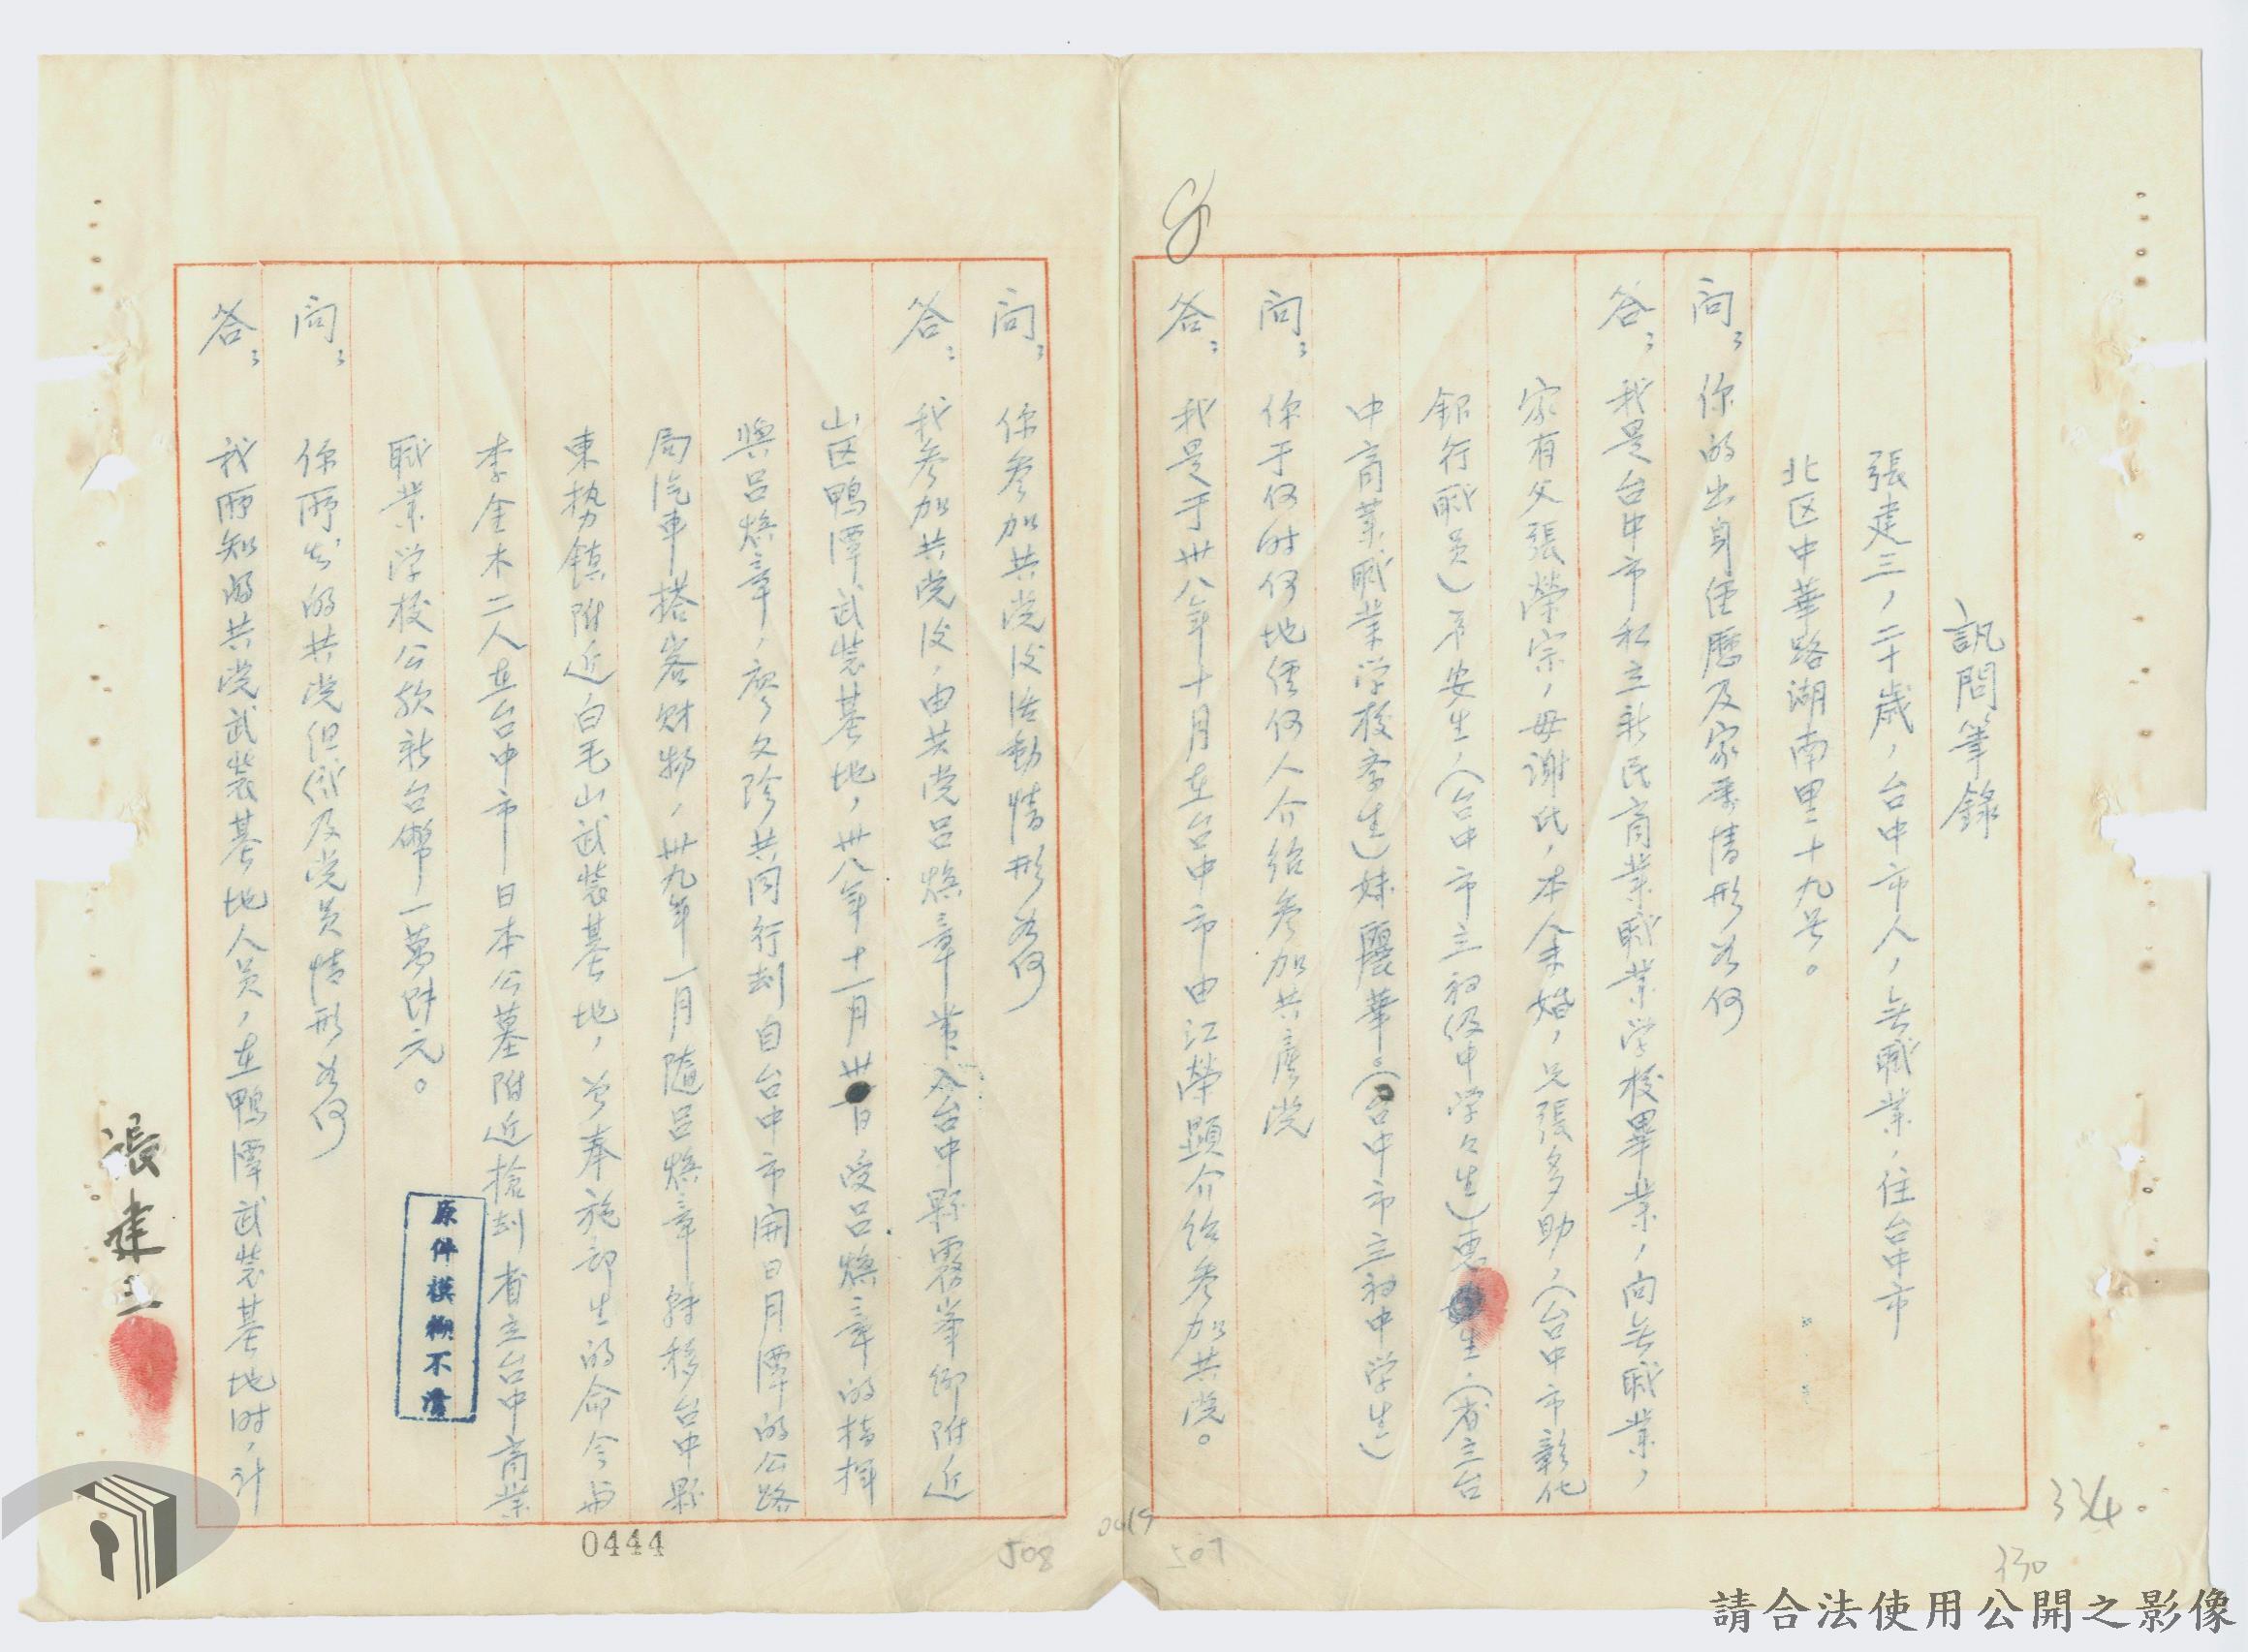 訊問筆錄
張建三，二十歲，台中市人，無職業，住台中市
北区中華路湖南里二十九号。
問：你的出身經歷及家庭情形為何
答：我是台中市私立新民商業職業学校畢業，向無職業，
家有父張榮宗，母謝氏，本人未婚，兄張多助，（台中市彰化
銀行職員）弟安生，（台中市立初级中学々生）惠生，（省立台
中商業職業学校学生）妹麗華。（台中市立初中学生）
問：你于何时何地經何人介紹參加共產党
答：我是于卅八年十月在台中市由江榮顯介紹參加共党。
問：你參加共党後活動情形為何
答：我參加共党後，由共党呂煥章帶入台中縣霧峯鄉附近
山区鴨潭武裝基地，卅八年十一月卅日受呂煥章的指揮
與呂煥章，廖文珍共同行刦自台中市開日月潭的公路
局汽車搭客財物，卅九年一月隨呂煥章轉移台中縣
東势鎮附近白毛山武裝基地，曾奉施部生的命令與
李金木二人在台中市日本公墓附近搶刦省立台中商業
職業学校公款新台幣一萬肆元。
問：你所知的共党組織及党員情形為何
答：我所知的共党武裝基地人員，在鴨潭武裝基地时，计
張建三
原件模糊不清
0444
508
0419
507
334
330
請合法使用公開之影像